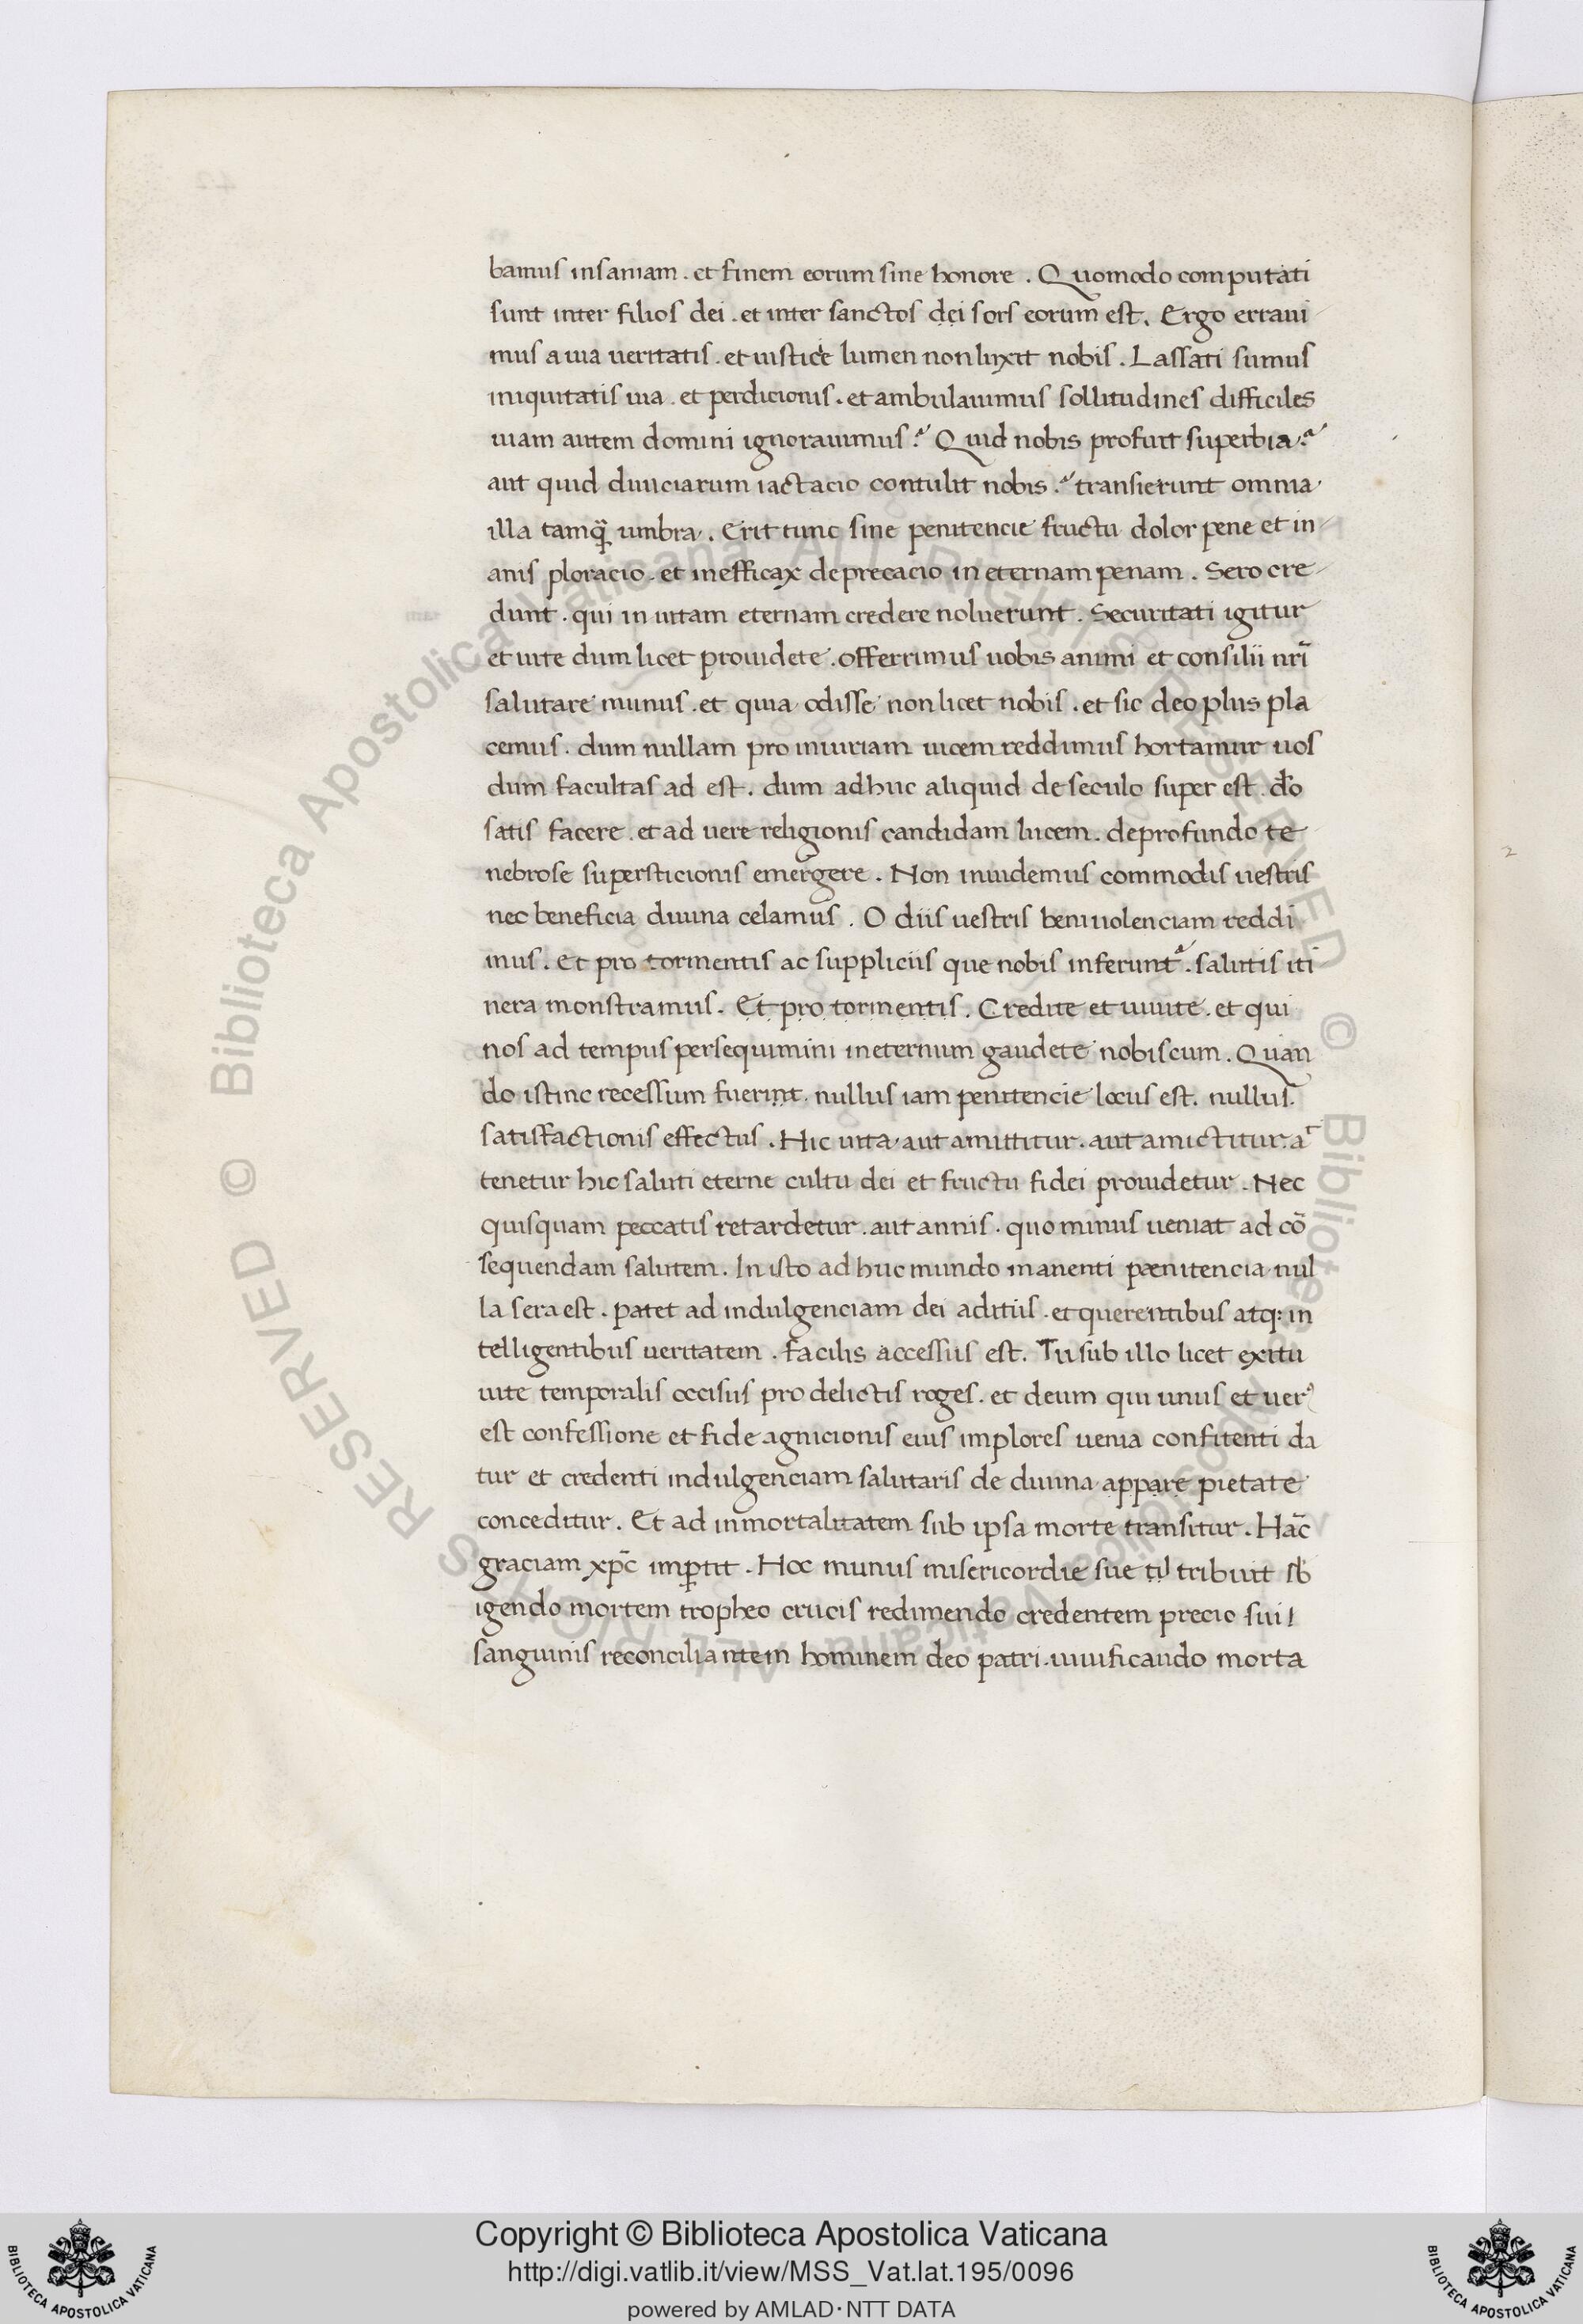 bamus insaniam . et finem eorum sine honore . Quomodo computati
sunt inter filios dei . et inter sanctos dei sors eorum est . Ergo erraui
mus a uia ueritatis . et iusticie lumen non luxit nobis . Lassati sumus
iniquitatis uia . et perdicionis . et ambulauimus sollitudines difficiles
uiam autem domini ignorauimus ? Quid nobis profuit superbia ?
aut quid diuiciarum iactacio contulit nobis ? transierunt omnia
illa tamq̃ umbra . Erit tunc sine penitencie fructu dolor pene et in
anis ploracio . et inefficax deprecacio in eternam penam . Sero cre
dunt . qui in uitam eternam credere noluerunt . Securitati igitur
et uite dum licet prouidete . offerrimus uobis animi et consilii nr̃i
salutare munus . et quia odisse non licet nobis . et sic deo plus pla
cemus . dum nullam pro iniuriam uicem reddimus hortamur uos
dum facultas ad est . dum adhuc aliquid de seculo super est . do
satis facere . et ad uere religionis candidam lucem . de profundo te
nebrose supersticionis emergere . Non inuidemus commodis uestris
nec beneficia diuina celamus . O diis uestris beniuolenciam reddi
mus . Et pro tormentis ac suppliciis que nobis inferunt . salutis iti
nera monstramus . Et pro tormentis . Credite et uiuite . et qui
nos ad tempus persequimini in eternum gaudete nobiscum . Quan
do istinc recessum fuerint . nullus iam penitencie locus est . nullus .
satisfactionis effectus . Hic uita aut amittitur . aut amictitur . at
tenetur hic saluti eterne cultu dei et fructu fidei prouidetur . Nec
quisquam peccatis retardetur . aut annis . quo minus ueniat ad cõ
sequendam salutem . In isto ad huc mundo manenti pænitencia nul
la sera est . patet ad indulgenciam dei aditus . et querentibus atq: in
telligentibus ueritatem . facilis accessus est . Tu sub illo licet exitu
uite temporalis occisus pro delictis roges . et deum qui unus et uer᾽
est confessione et fide agnicionis eius implores uenia confitenti da
tur et credenti indulgenciam salutaris de diuina appare pietate
conceditur . Et ad inmortalitatem sub ipsa morte transitur . Hãc
graciam xp̃c imꝑtit . Hoc munus misericordie sue tribuit sb
igendo mortem tropheo crucis redimendo credentem precio sui
sanguinis reconciliantem hominem deo patri . uiuificando morta
2
Copyright © Biblioteca Apostolica Vaticana
http://digi.vatlib.it/view/MSS_Vat.lat.195/0096
powered by AMLAD·NTT DATA
BIBLIOTECA APOSTOLICA VATICANA
BIBLIOTECA APOSTOLICA VATICANA